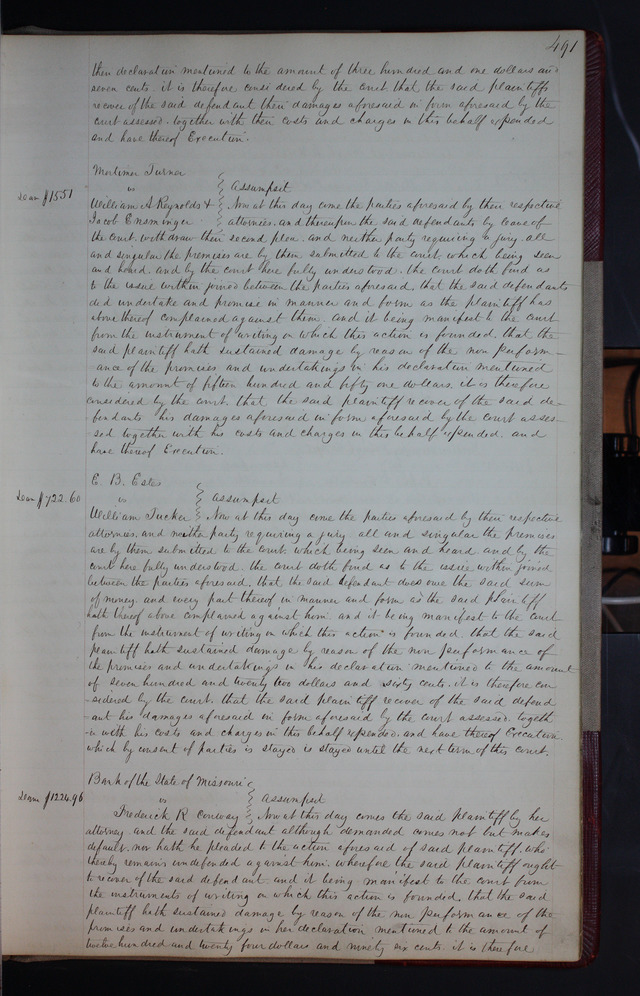 491
then declaration mentioned to the amount of three hundred and one dollars and
seven cents. it is therefore considered by the court that the said plaintiffs
recover of the said defendant their damages aforesaid in form aforesaid by the
court assessed. together with their costs and charges in this behalf expended
and have thereof Execution.
Mortimer Turner
vs
Assumpsit
$1551
William A Reynolds &
Jacob Ensminger
Now at this day come the parties aforesaid by their respective
attornies. and thereupon the said defendants by leave of
the court. withdraw their second plea. and neither party requiring a jury. all
and singular the premises are by them submitted to the court. which being seen
and heard. and by the court here fully understood. the court doth find as
to the issue within joined between the parties aforesaid. that the said defendants
did undertake and promise in manner and form as the plaintiff has
above thereof complained against them. and it being manifest to the court
from the instrument of writing on which this action is founded. that the
said plaintiff hath sustained damage by reason of the non perform-
ance of the promises and undertakings in his declaration mentioned
to the amount of fifteen hundred and fifty one dollars. it is therefore
considered by the court. that the said plaintiff recover of the said de-
fendants his damages aforesaid in form aforesaid by the court asses-
sed together with his costs and charges in this behalf expended. and
have thereof Execution.
E. B. Estes
vs
Assumpsit
$722.60
William Tucker
Now at this day come the parties aforesaid by their respective
attornies. and neither party requiring a jury. all and singular the premises
are by them submitted to the court. which being seen and heard and by the
court here fully understood. the court doth find as to the issue within joined
between the parties aforesaid. that the said defendant does owe the said sum
of money. and every part thereof in manner and form as the said plaintiff
hath thereof above complained against him. and it being manifest to the court
from the instrument of writing on which this action is founded. that the said
plaintiff hath sustained damage by reason of the non performance of
the promises and undertakings in his declaration mentioned to the amount
of seven hundred and twenty two dollars and sixty cents. it is therefore con
-sidered by the court. that the said plaintiff recover of the said defend
ant his damages aforesaid in form aforesaid by the court assessed. togeth
-er with his costs and charges in this behalf expended. and have thereof Execution.
which by consent of parties is stayed is stayed until the next term of this court.
Bank of the State of Missouri
vs
Assumpsit
$1224.96
Frederick R Conway
Now at this day comes the said plaintiff by her
attorney. and the said defendant although demanded comes not but makes
default. nor hath he pleaded to the action aforesaid of said plaintiff. who
thereby remains undefended against him. wherefore the said plaintiff ought
to recover of the said defendant. and it being manifest to the court from
the instruments of writing on which this action is founded, that the said
plaintiff hath sustained damage by reason of the non performance of the
promises and undertakings in her declaration mentioned to the amount of
twelve hundred and twenty four dollars and ninety six cents. it is therefore